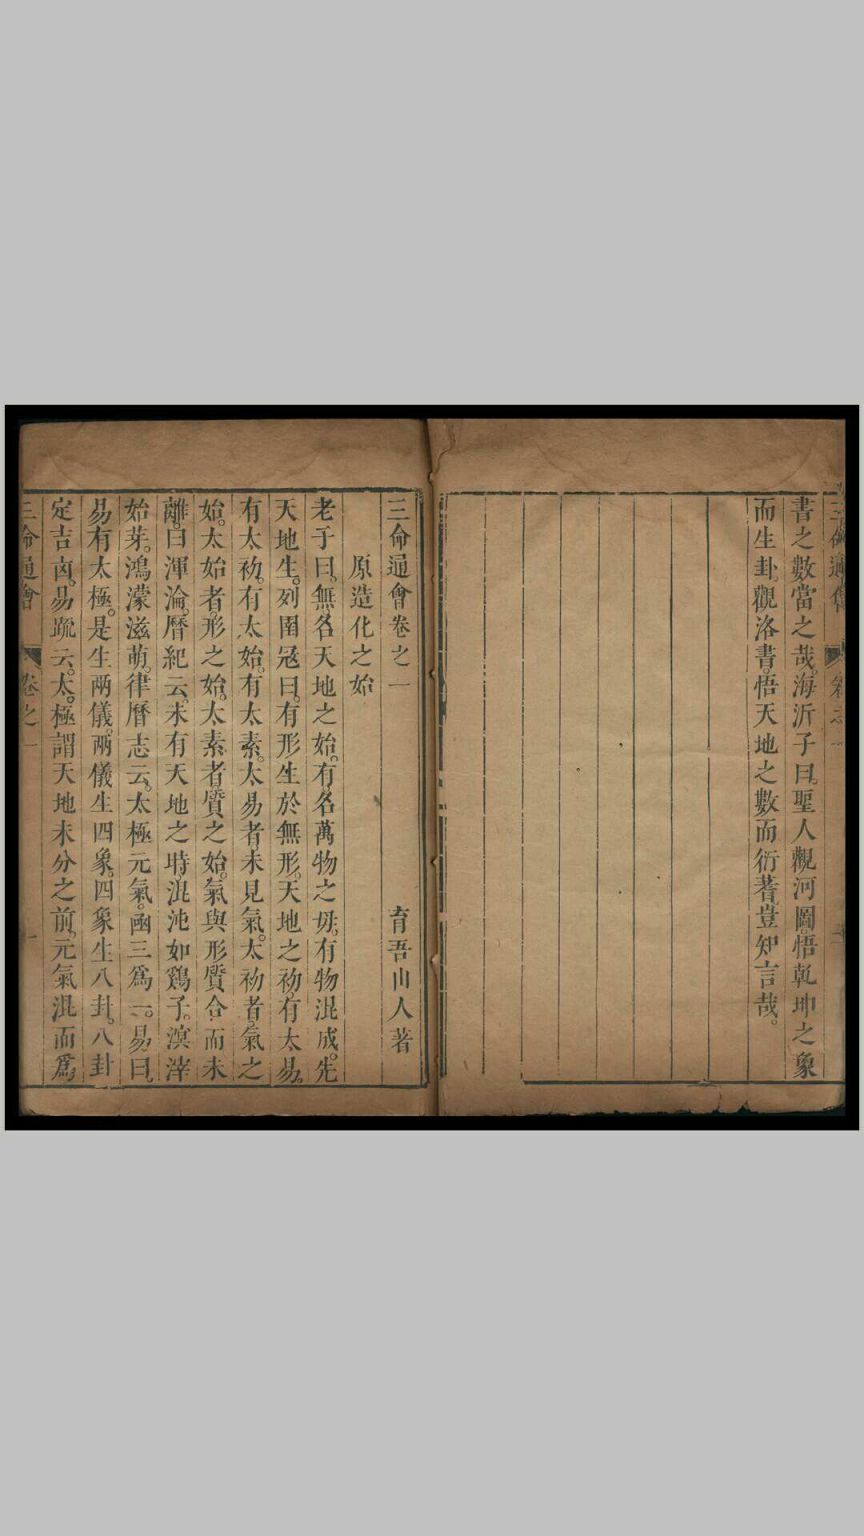 三命通會 卷之一
書之數當之哉。海沂子曰。聖人觀河圖。悟乾坤之象
而生卦。觀洛書。悟天地之數而衍蓍。豈知言哉。
三命通會卷之一 育吾山人著
原造化之始
老子曰。無名天地之始。有名萬物之母。有物混成。先
天地生。列圄冦曰。有形生於無形。天地之初。有太易。
有太初。有太始。有太素。太易者。未見氣。太初者。氣之
始。太始者。形之始。太素者。質之始。氣與形質合而未
離。曰渾淪。曆紀云。未有天地之時。混沌如鷄子。溟涬
始芽。鴻濛滋萌。律曆志云。太極元氣。函三爲一。易曰。
易有太極。是生兩儀。兩儀生四象。四象生八卦。八卦
定吉凶。易疏云。太極謂天地未分之前。元氣混而爲
三命通會 卷之一 一